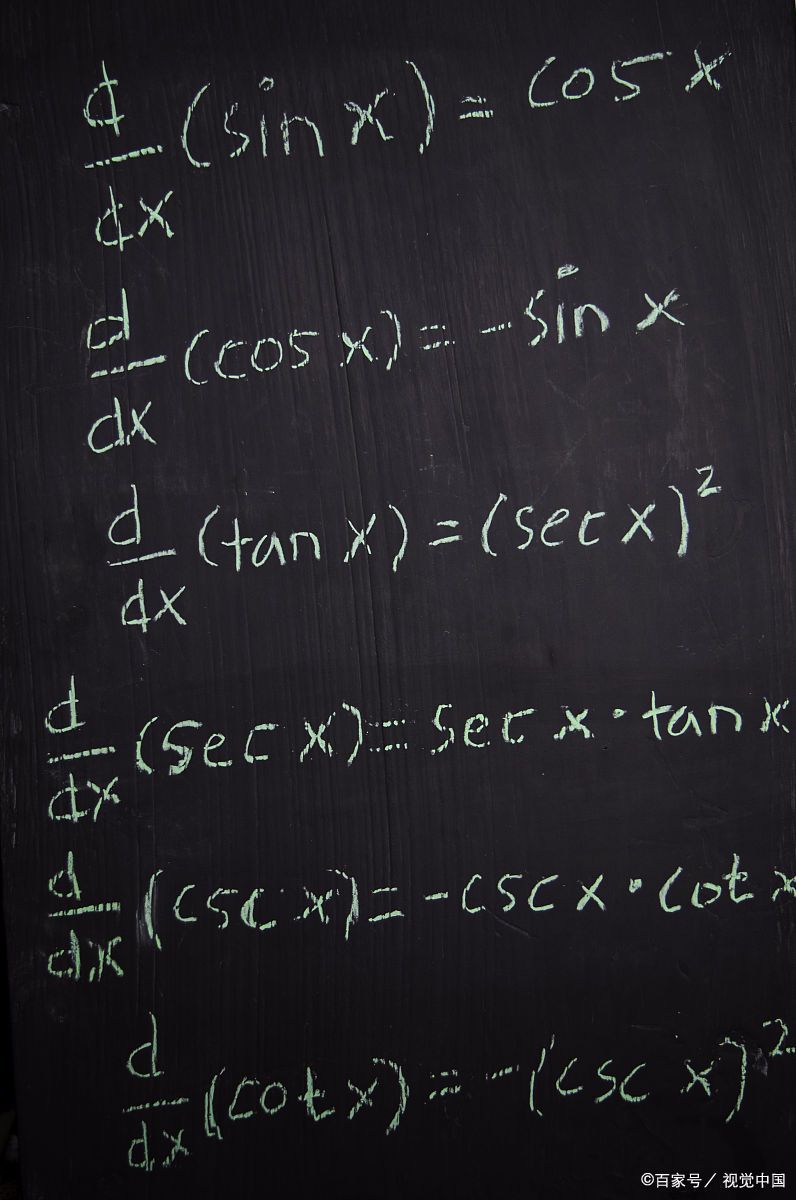 d/dx (sin x) = cos x
d/dx (cos x) = -sin x
d/dx (tan x) = (sec x)²
d/dx (sec x) = sec x · tan x
d/dx (csc x) = -csc x · cot x
d/dx (cot x) = -(csc x)²
©百家号/视觉中国